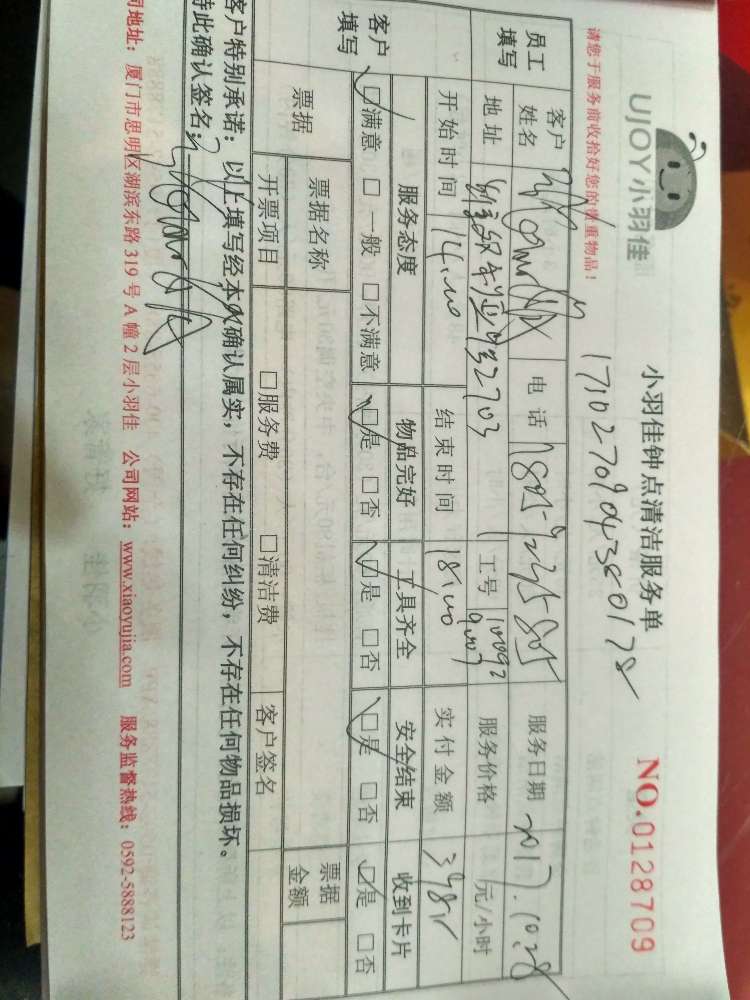 UJOY小羽佳
小羽佳钟点清洁服务单
NO.0128709
请您于服务前收拾好您的贵重物品！
171027090438017
员工填写 客户姓名 电话 服务日期 2017.10.28
地址 2703 工号 服务价格 元/小时
开始时间 14:00 结束时间 18:00 实付金额
客户填写 服务态度 物品完好 工具齐全 安全结束 收到卡片
☑满意 □一般 □不满意 ☑是 □否 ☑是 □否 ☑是 □否 ☑是 □否
票据 票据名称 票据金额
开票项目 □服务费 □清洁费 客户签名
客户特别承诺：以上填写经本人确认属实，不存在任何纠纷，不存在任何物品损坏。
特此确认签名：
司地址：厦门市思明区湖滨东路 319 号 A 幢 2 层小羽佳 公司网站：www.xiaoyujia.com 服务监督热线：0592-5888123